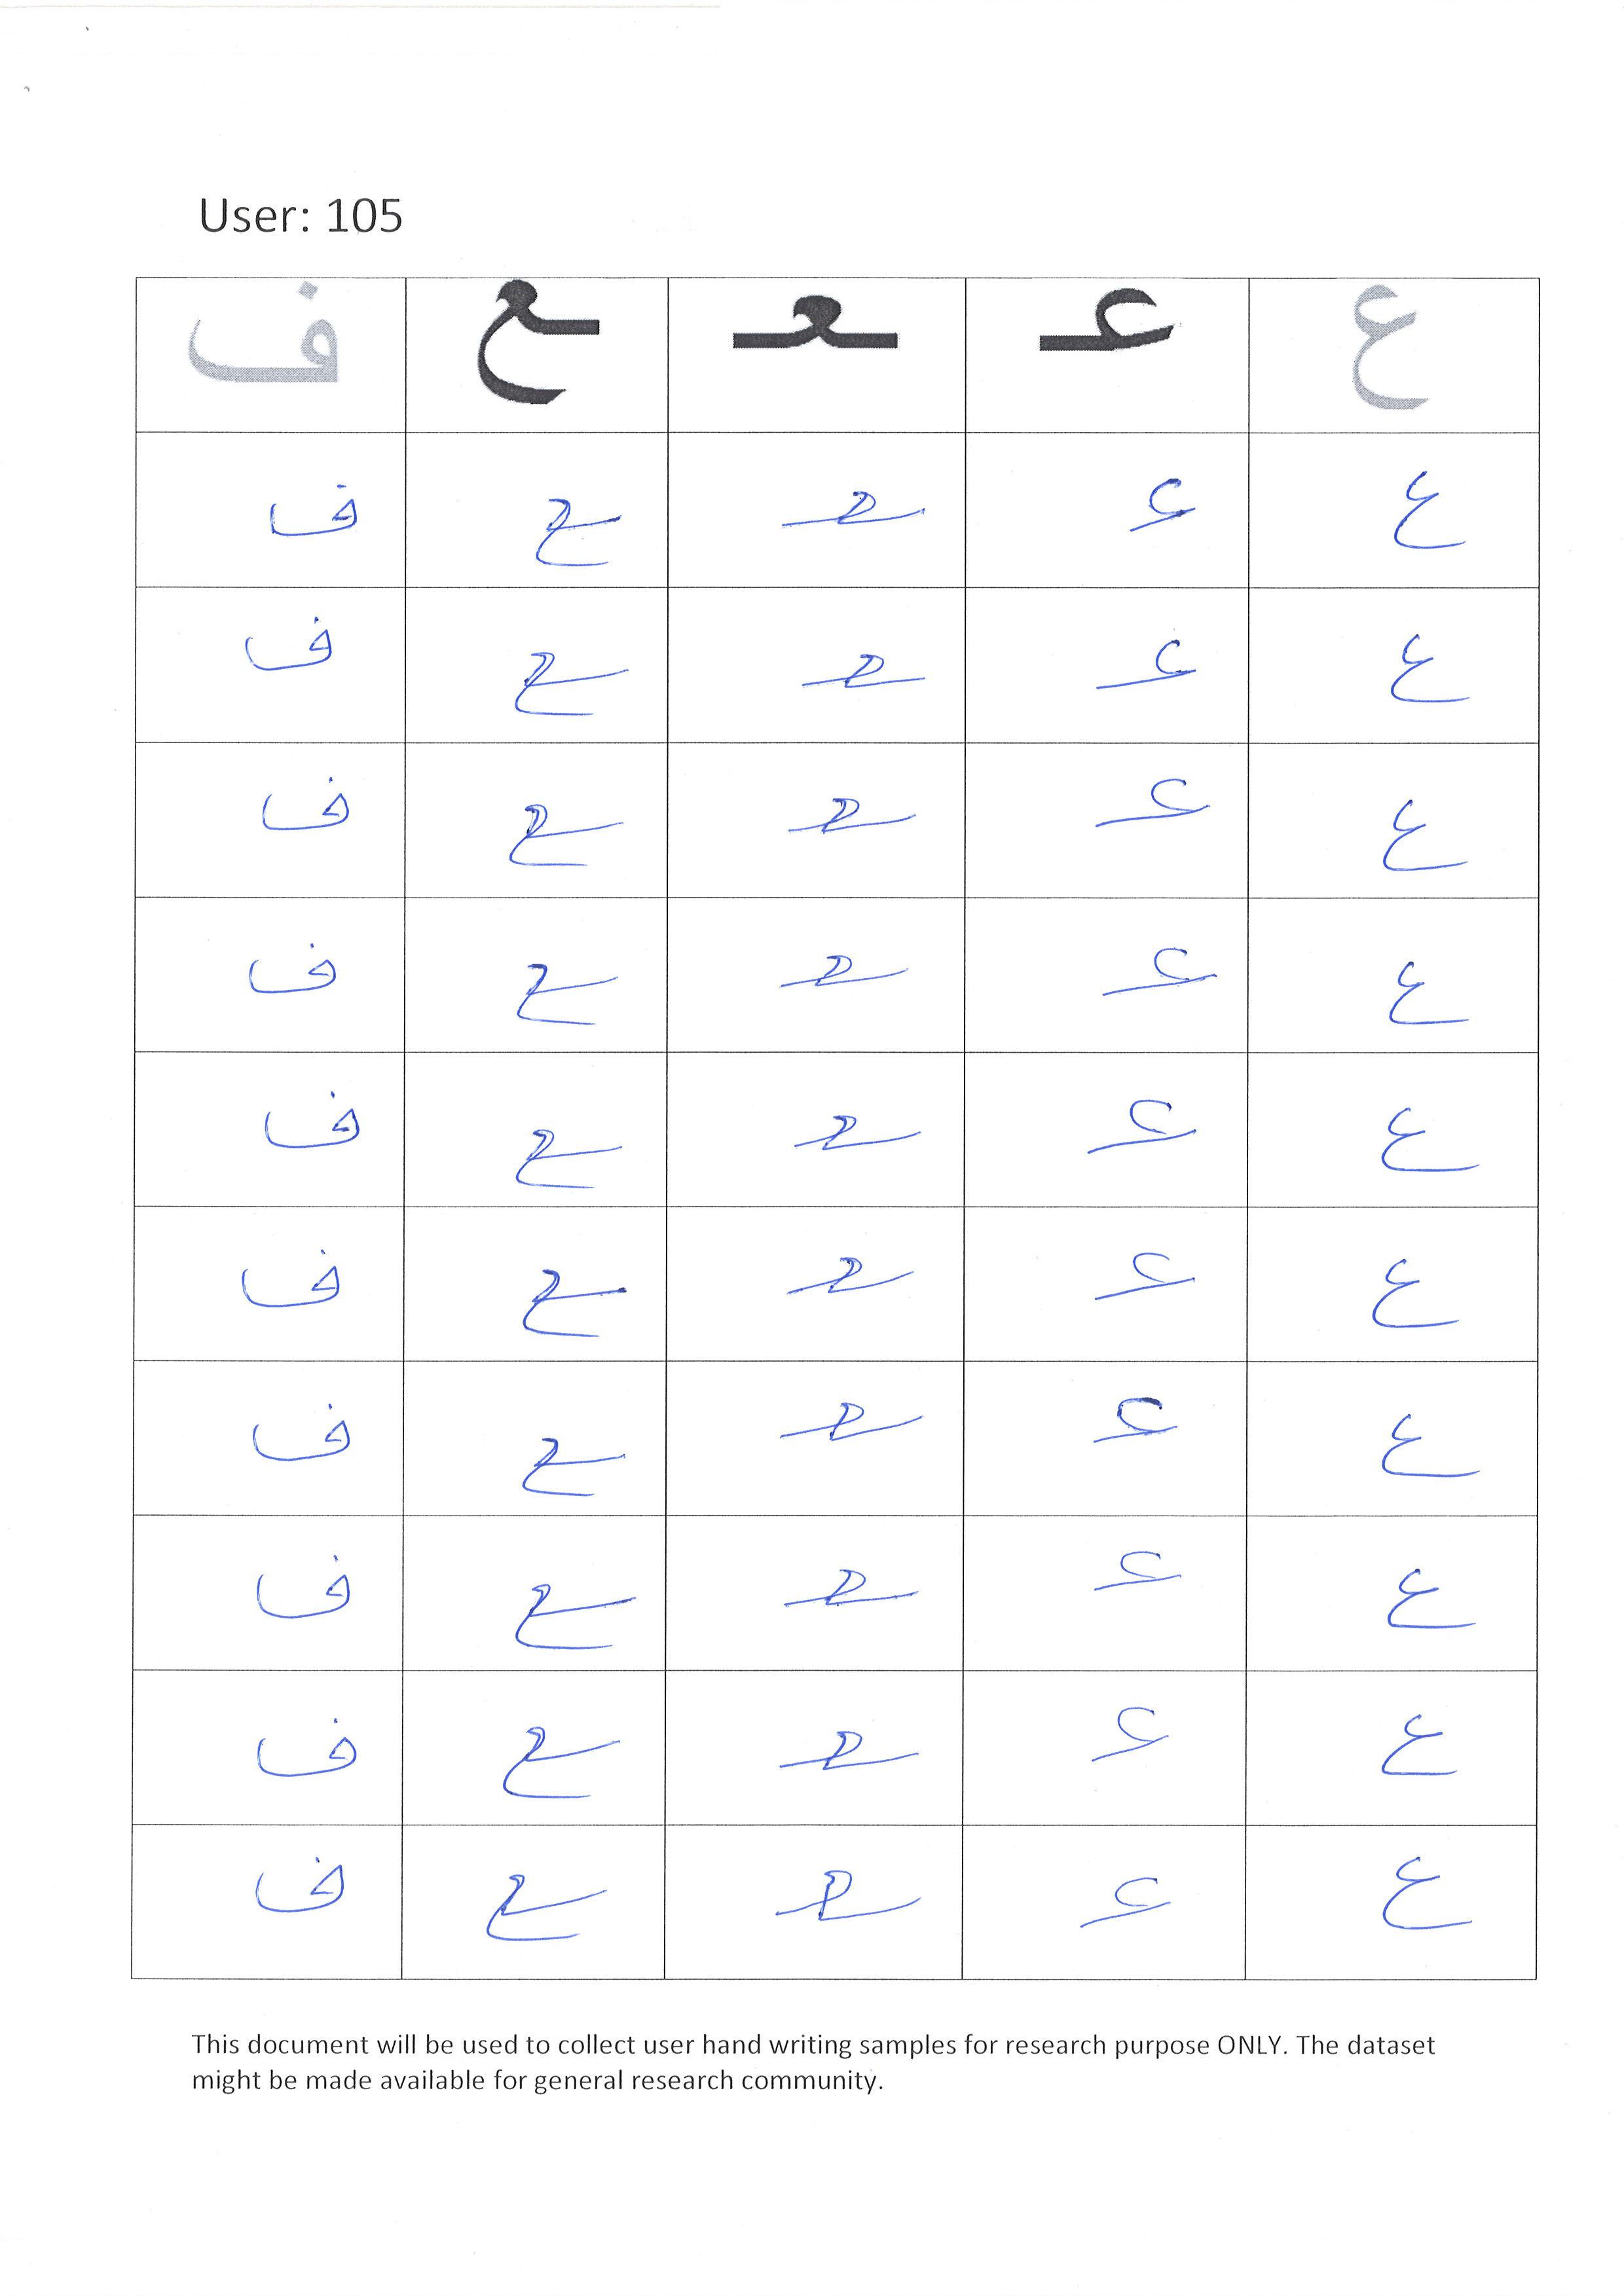 User: 105
ع عـ ـعـ ـع ف
ع عـ ـعـ ـع ف
ع عـ ـعـ ـع ف
ع عـ ـعـ ـع ف
ع عـ ـعـ ـع ف
ع عـ ـعـ ـع ف
ع عـ ـعـ ـع ف
ع عـ ـعـ ـع ف
ع عـ ـعـ ـع ف
ع عـ ـعـ ـع ف
ع عـ ـعـ ـع ف
This document will be used to collect user hand writing samples for research purpose ONLY. The dataset
might be made available for general research community.